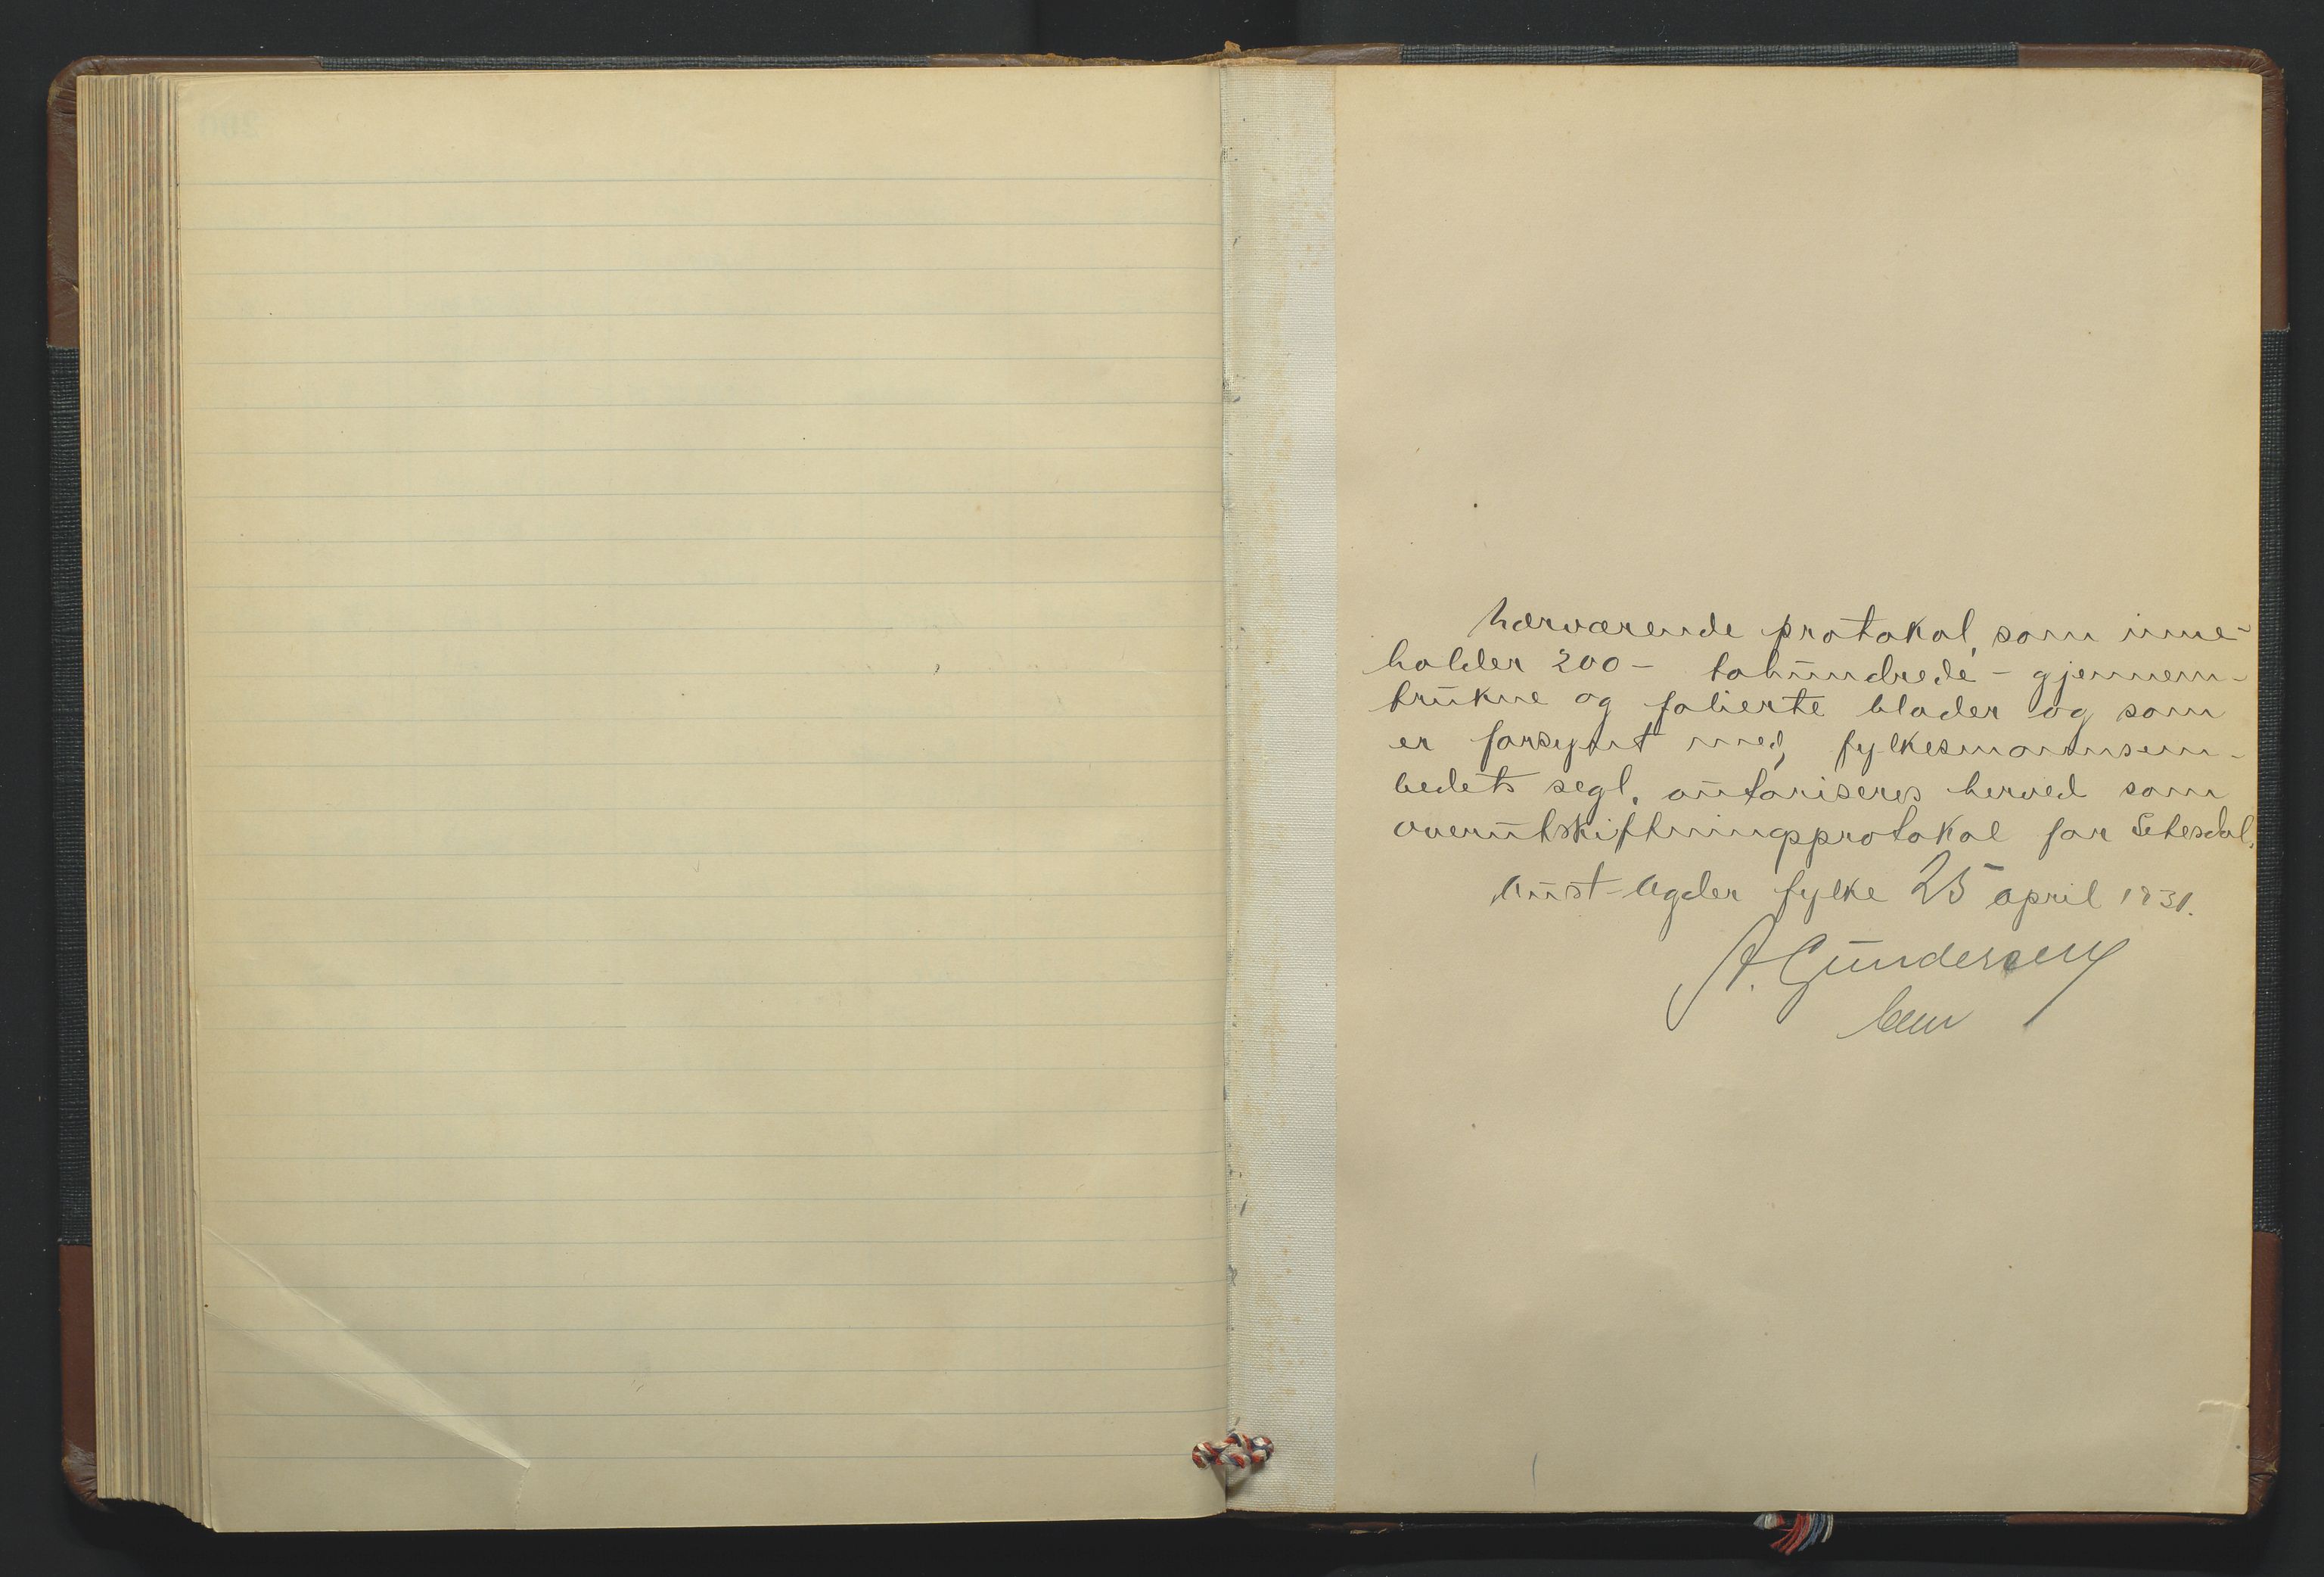 Hærværende protokol, som inne-
holder 200 - tohundrede - gjennem-
trukne og folierte blader og som
er forsynt med fylkesmannsem-
bedets segl, autoriseres herved som
overutskiftningsprotokol for Setesdal.
Aust-Agder fylke 25 april 1931.
A. Gundersen